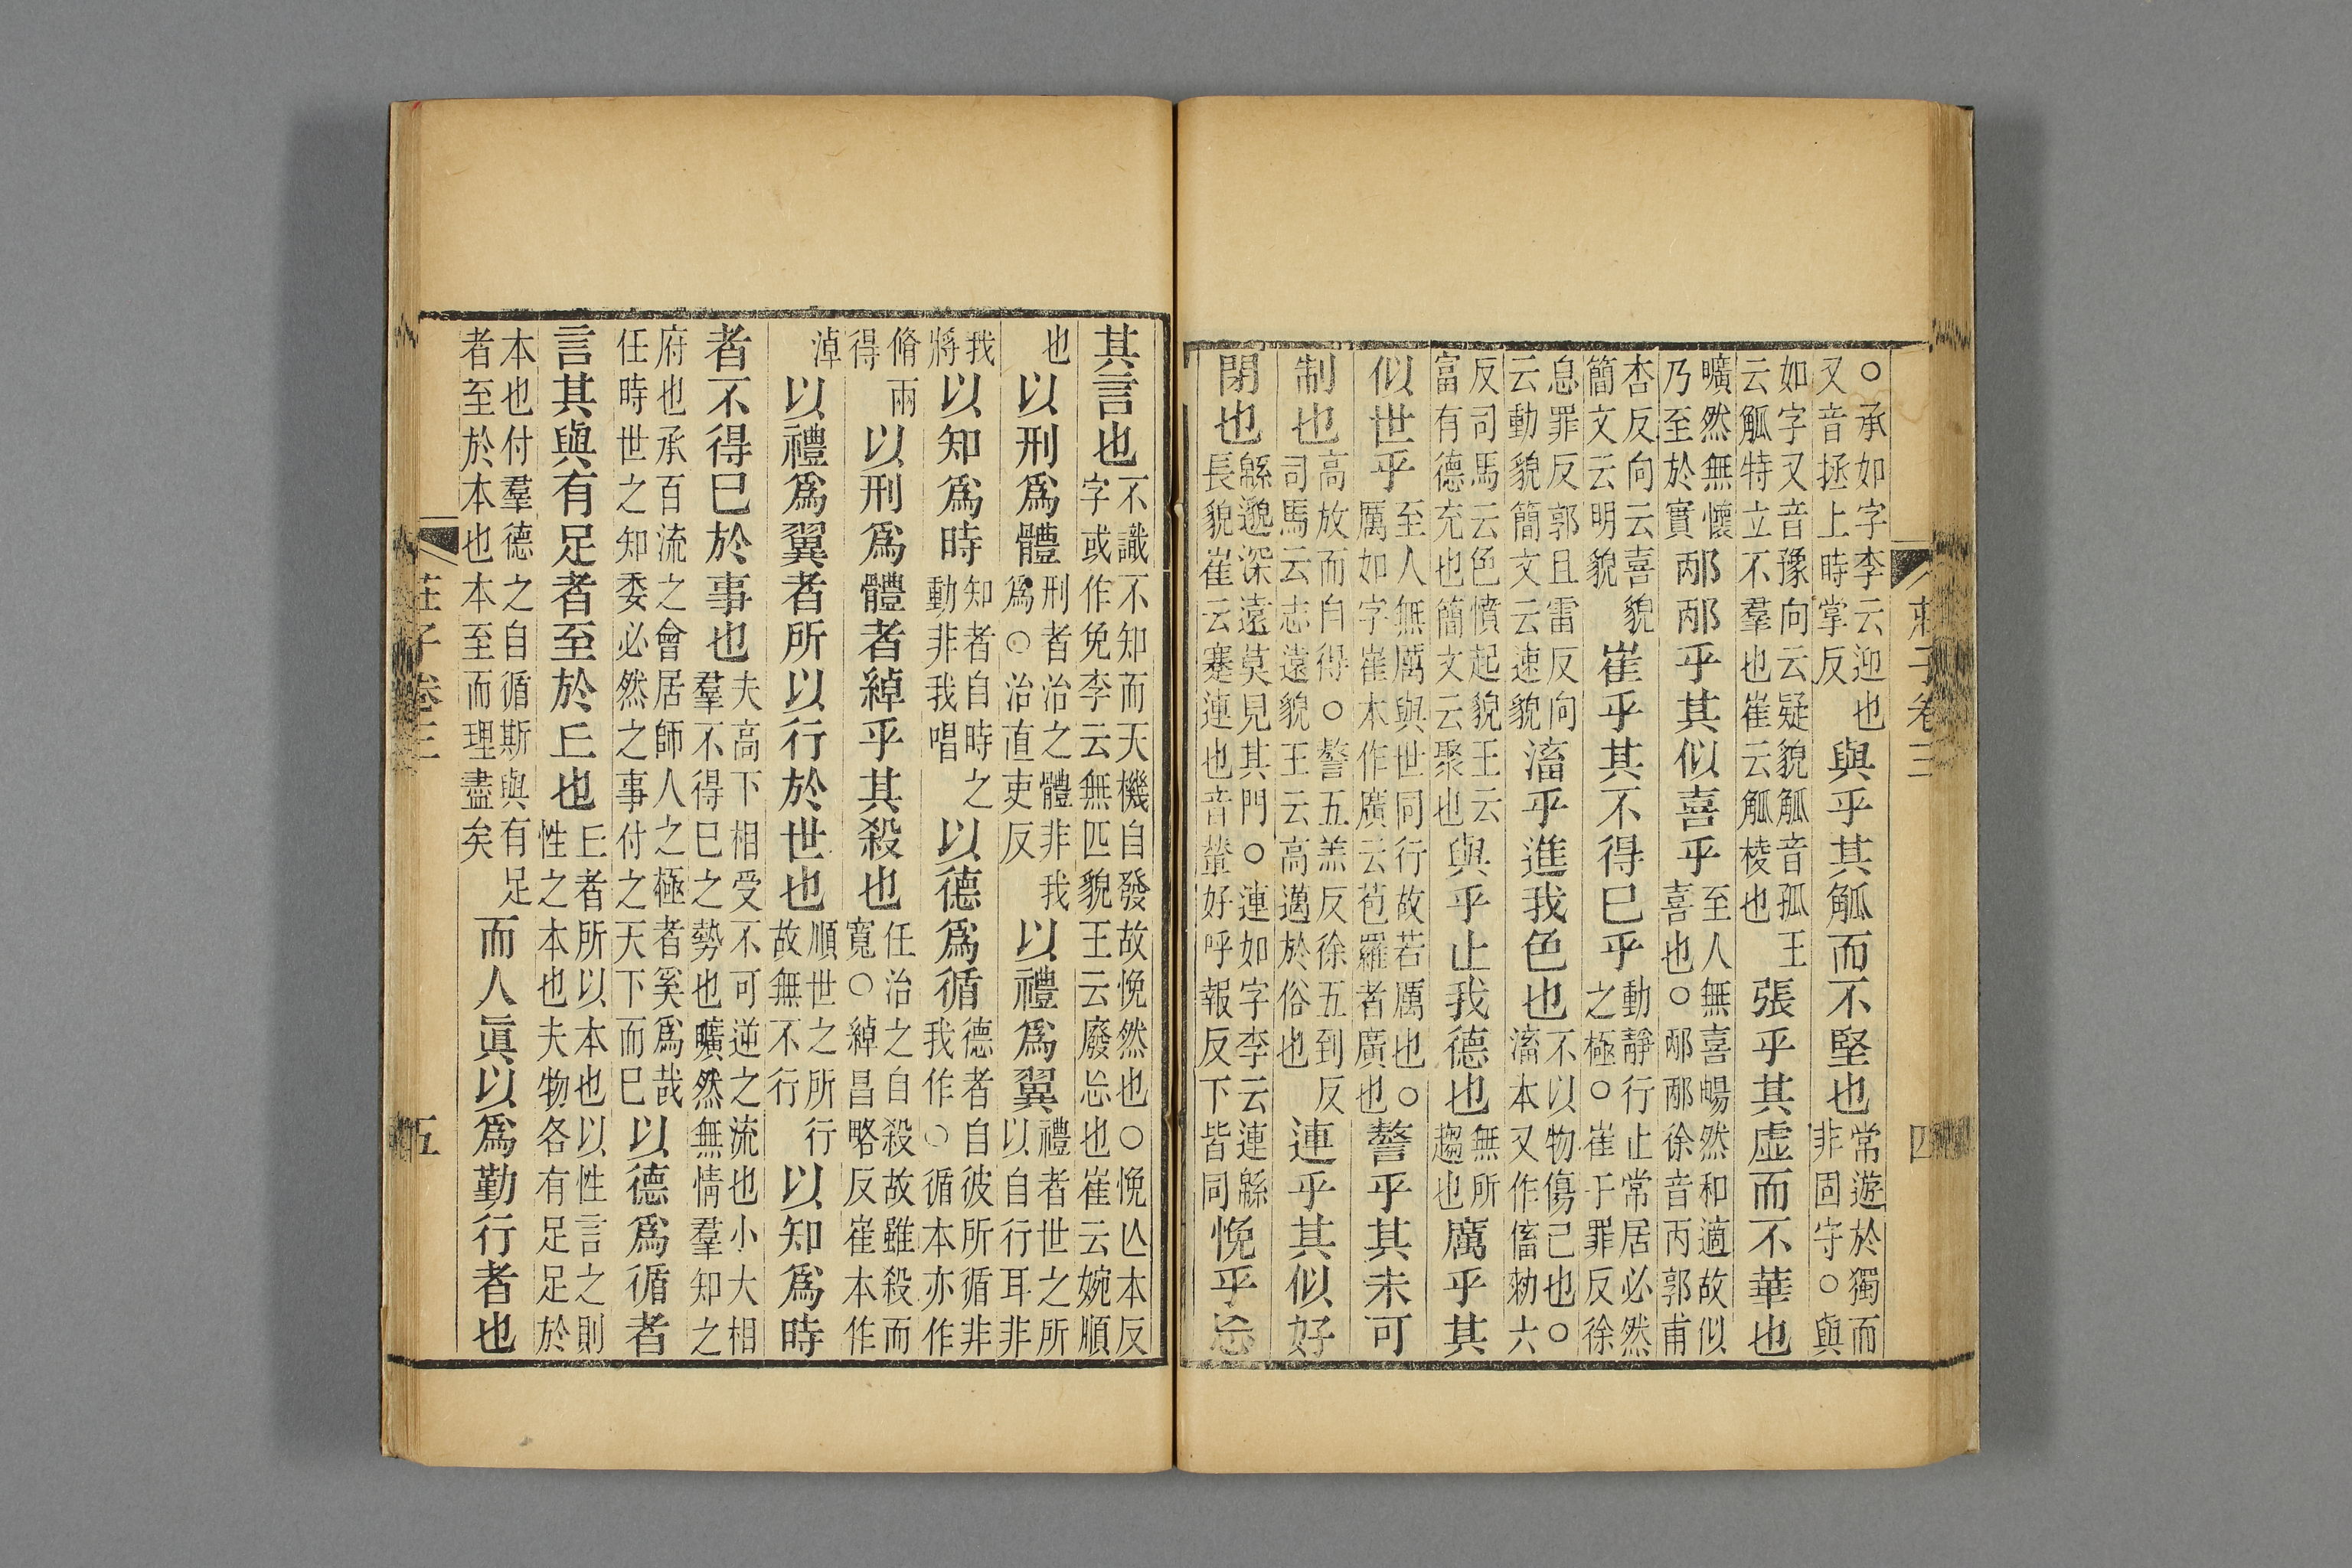 莊子卷三 四
○承如字李云迎也又音拯上時掌反與乎其觚而不堅也常遊於獨而非固守○與
如字又音豫向云疑貌觚音孤王云觚特立不羣也崔云觚棱也張乎其虛而不華也
曠然無懷乃至於實邴邴乎其似喜乎至人無喜暢然和適故似喜也○邴邴徐音丙郭甫
杏反向云喜貌簡文云明貌崔乎其不得已乎動靜行止常居必然之極○崔于罪反徐
息罪反郭且雷反向云動貌簡文云速貌滀乎進我色也不以物傷己也○滀本又作傗勑六
反司馬云色憤起貌王云富有德充也簡文云聚也與乎止我德也無所趨也厲乎其
似世乎至人無厲與世同行故若厲也○厲如字崔本作廣云苞羅者廣也謷乎其未可
制也高放而自得○謷五羔反徐五到反司馬云志遠貌王云高邁於俗也連乎其似好
閉也緜邈深遠莫見其門○連如字李云連緜長貌崔云蹇連也音輦好呼報反下皆同悗乎忘
其言也不識不知而天機自發故悗然也○悗亾本反字或作免李云無匹貌王云廢忘也崔云婉順
也以刑爲體刑者治之體非我爲○治直吏反以禮爲翼禮者世之所以自行耳非
我將以知爲時知者自時之動非我唱以德爲循德者自彼所循非我作○循本亦作
脩兩得以刑爲體者綽乎其殺也任治之自殺故雖殺而寬○綽昌略反崔本作
淖以禮爲翼者所以行於世也順世之所行故無不行以知爲時
者不得已於事也夫高下相受不可逆之流也小大相羣不得已之勢也曠然無情羣知之
府也承百流之會居師人之極者奚爲哉任時世之知委必然之事付之天下而已以德爲循者
言其與有足者至於丘也丘者所以本也以性言之則性之本也夫物各有足足於
本也付羣德之自循斯與有足者至於本也本至而理盡矣而人眞以爲勤行者也
莊子卷三 五